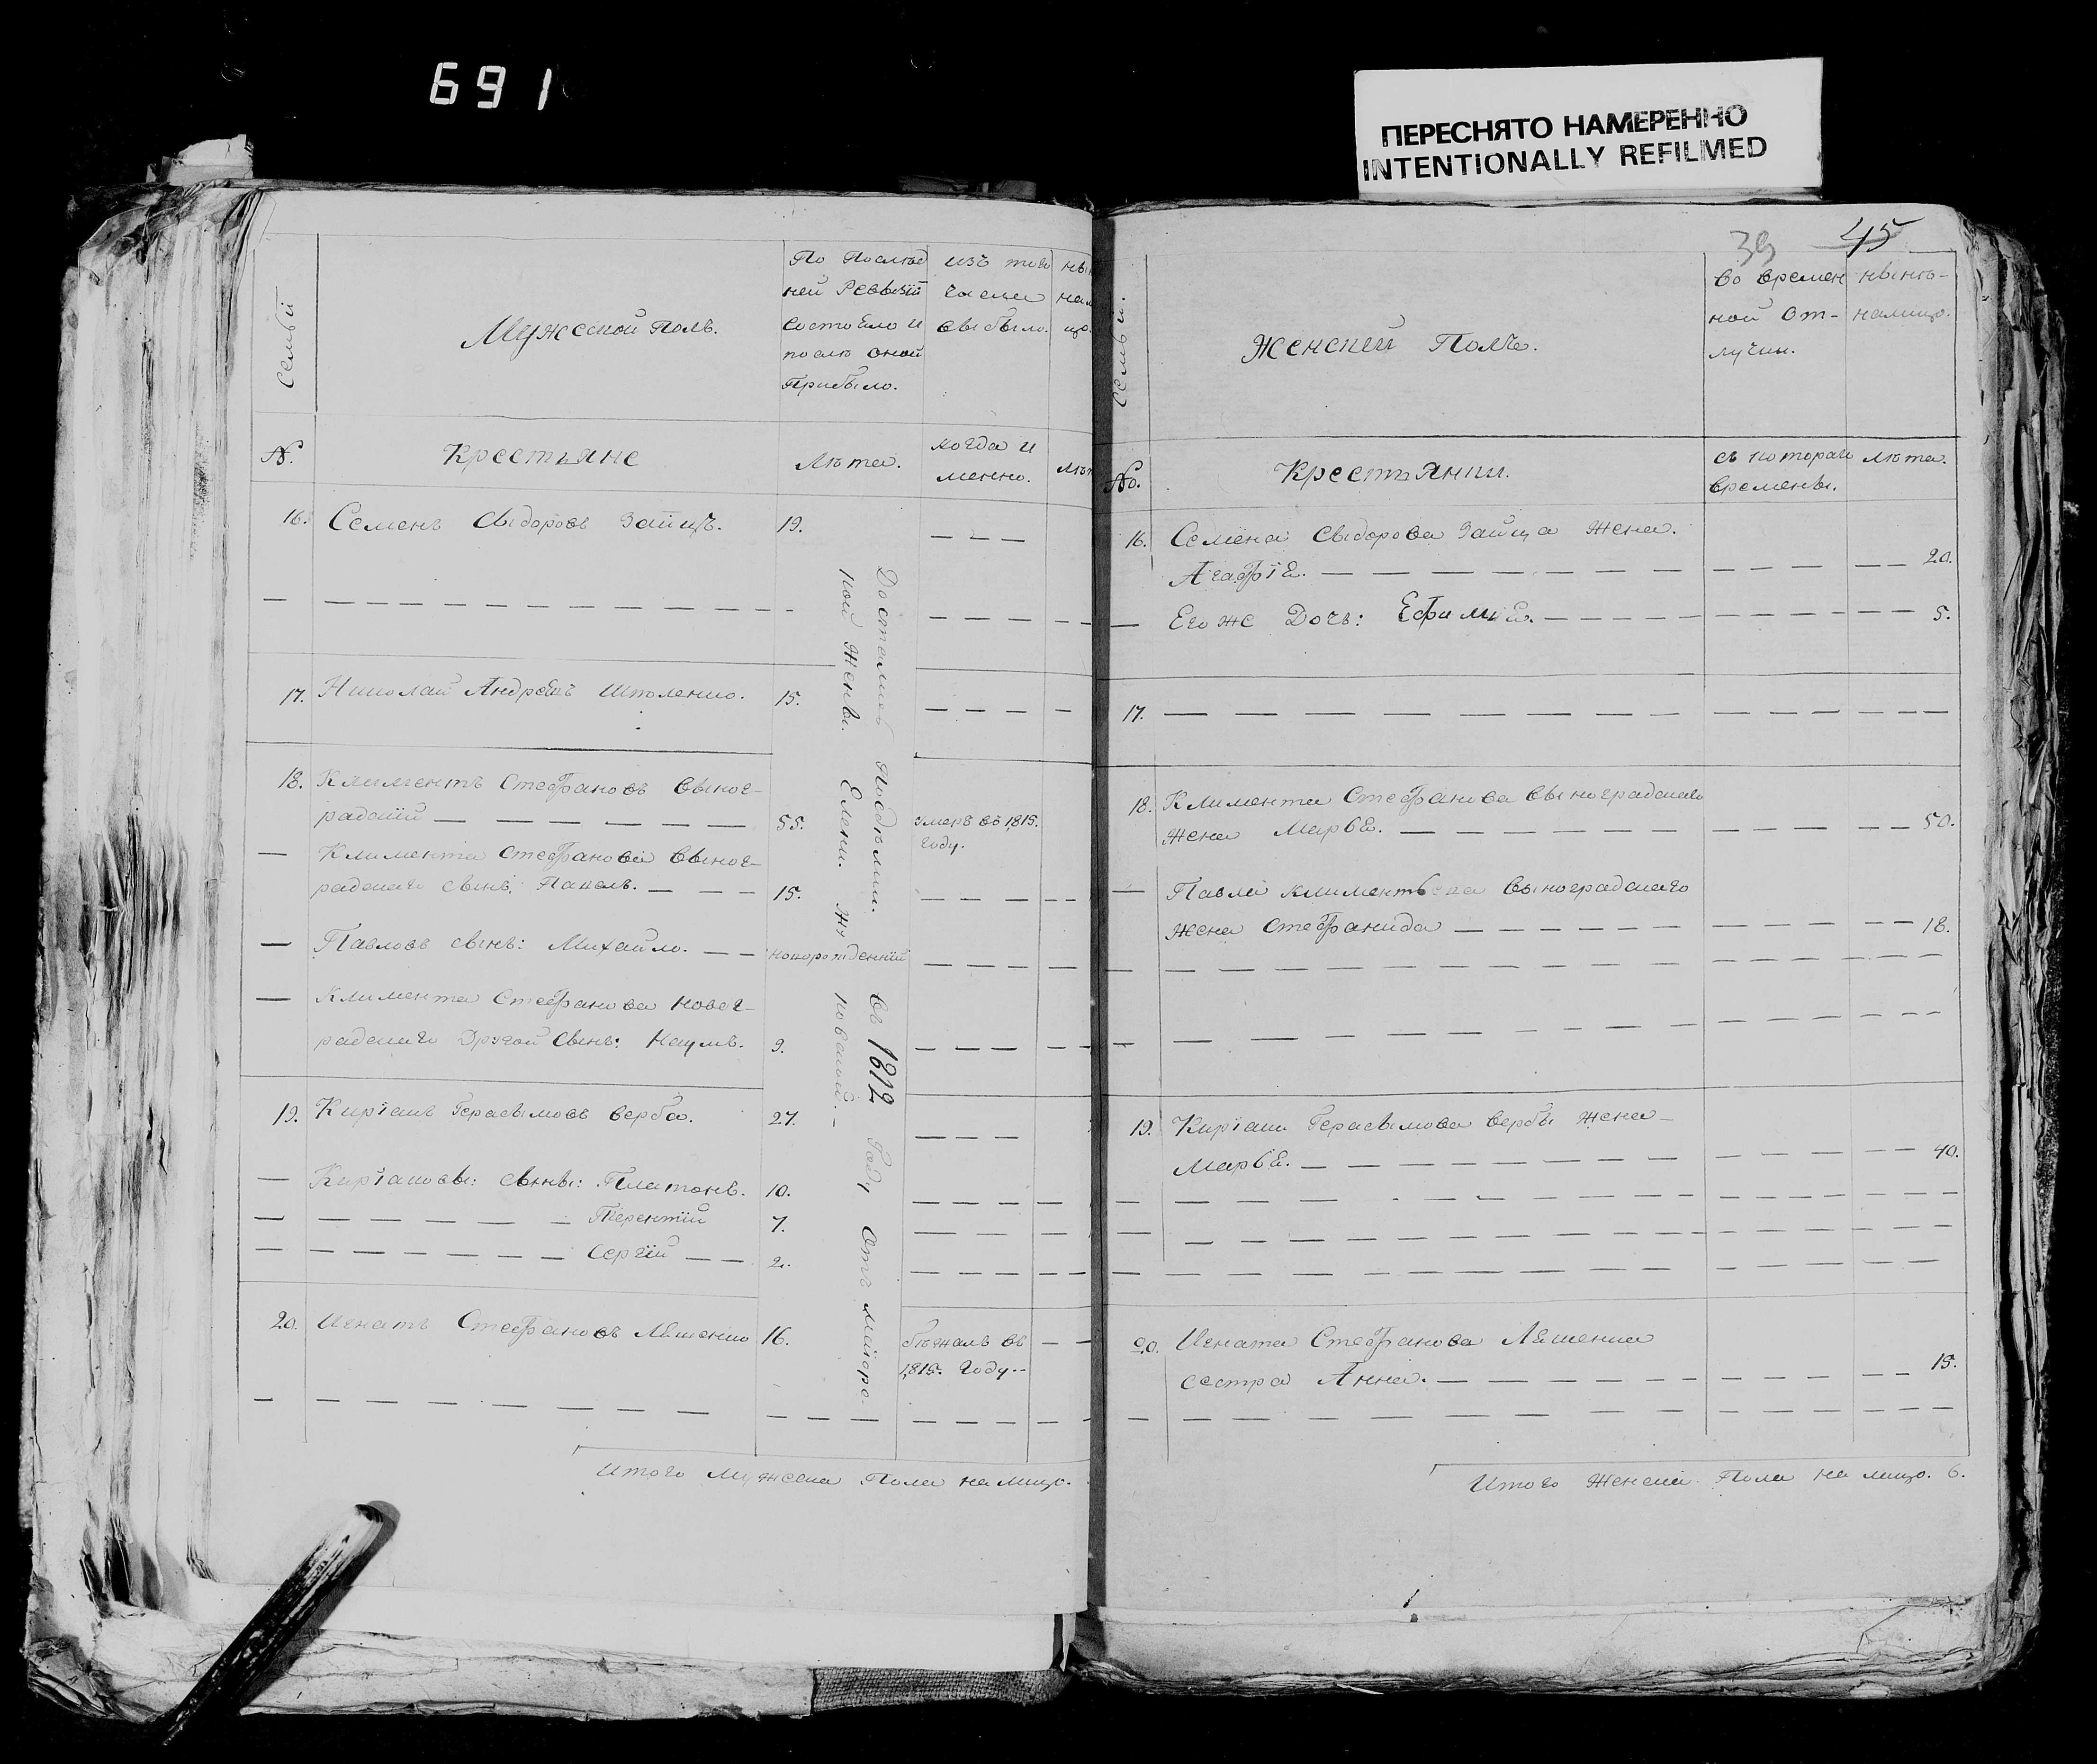 691
ПЕРЕСНЯТО НАМЕРЕННО
INTENTIONALLY REFILMED
Семьи
Мужеской Полъ.
По Послѣд
ней Ревизіи
состояло и
послѣ оной
Прибыло.
изъ того
числа
выбыло.
№.
Крестьяне
Лѣта.
когда и
менно.
16. Семенъ Сыдоровъ Заицъ. 19.
17. Николай Андреевъ Школенко. 15.
18. Климентъ Стефановъ Выног-
радскій 55. умеръ въ 1815.
году.
Климента Стефанова Выног-
радскаго сынъ, Павелъ. 15.
Павловъ сынъ: Михайло. новорожденній
Климента Стефанова Новог-
радскаго Другой Сынъ: Наумъ. 9.
19. Киріакъ Герасымовъ Верба. 27.
Киріаковы: сыны: Платонъ. 10.
Терентій 7.
Сергій 2.
20. Игнатъ Стефановъ Ляшенко 16. бѣжалъ въ
1815. Году
Достались Подѣлки. Въ 1812 Году Отъ маіорс-
кой Жены. Елены.
Итого Мужеска Пола на лицо.
39 45
Семьи.
Женскій Полъ.
Во времен
ной От-
лучки.
нынѣ-
налицо.
№.
Крестьянки.
съ котораго
времены.
лѣта.
16. Семена Сыдорова Зайца Жена.
Агафія. 20.
Его же Дочь: Ефимія. 5.
17.
18. Климента Стефанова Выноградскаго
жена Марья. 50.
Павла Климентьева Выноградскаго
жена Стефанида 18.
19. Киріака Герасымова Вербы Жена
Марья. 40.
20. Игната Стефанова Ляшенка
сестра Анна. 15.
Итого Женска Пола на лицо. 6.